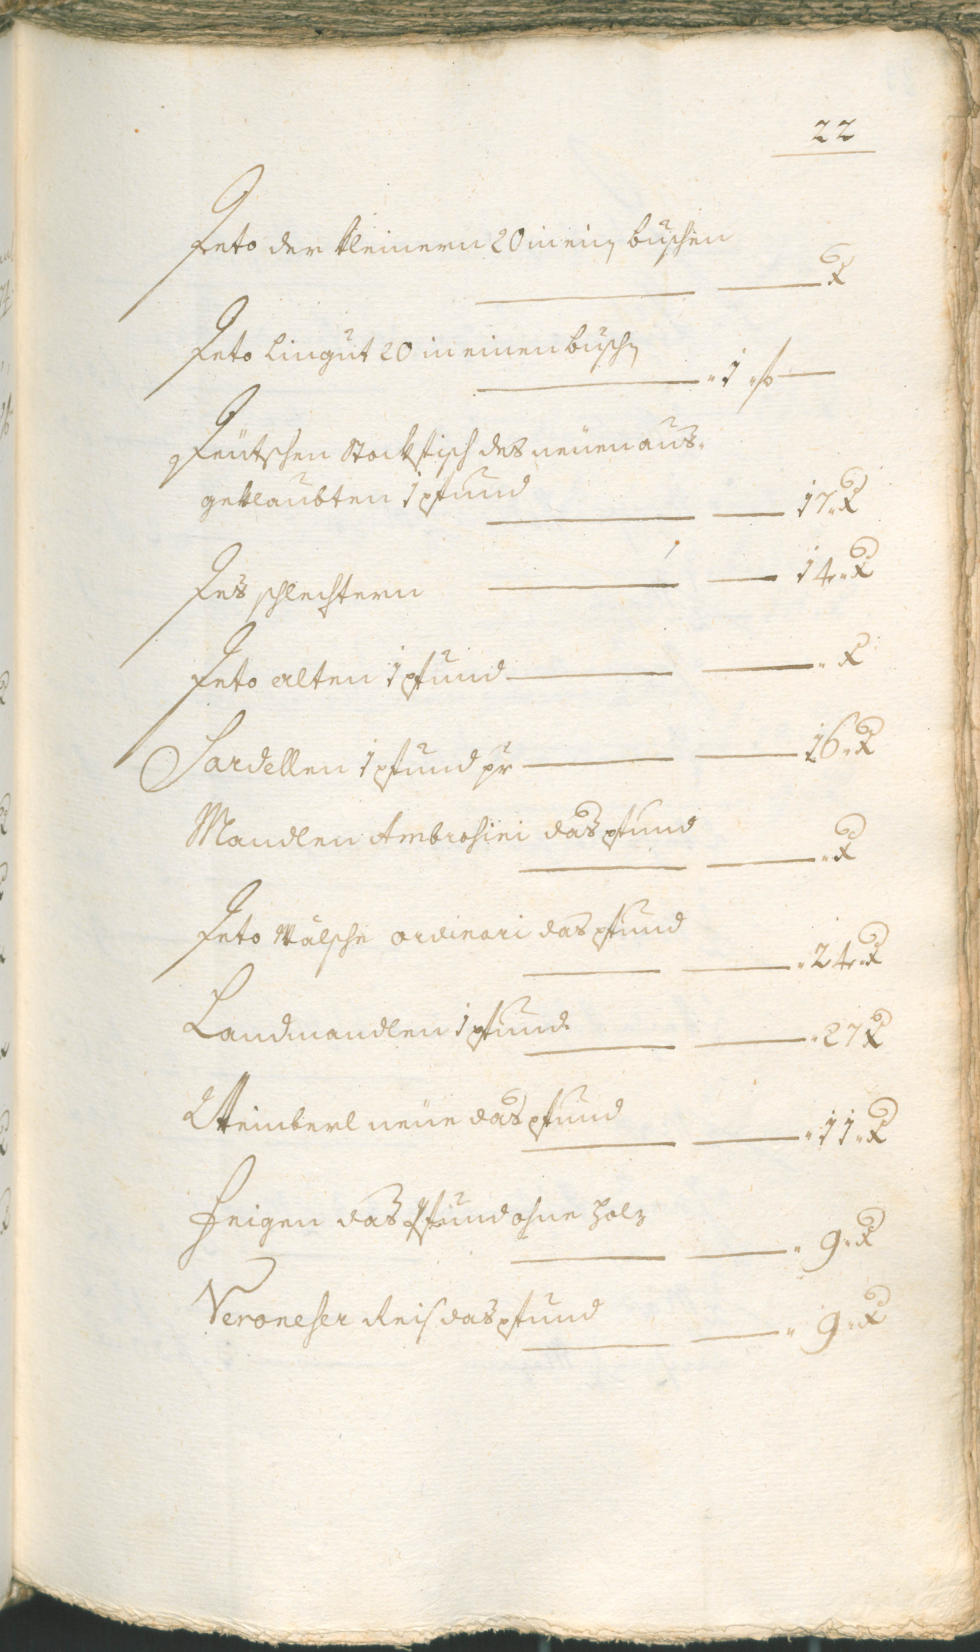 22
Deto der kleinern 20 in ein buschen
x
Deto Lingut 20 in einen busch
1 f
Teutschen Stockfisch des neuen aus-
geklaubten 1 pfund
17 x
Des schlechtern 14 x
Deto alten 1 pfund x
Sardellen 1 pfund pr 16 x
Mandlen Ambrosini das pfund
x
Deto Wälsche ordinari das pfund
24 x
Landmandlen 1 pfund
27 x
Weinberl neue das pfund
11 x
Feigen das Pfund ohne Holz
9 x
Veroneser Reis das pfund
9 x